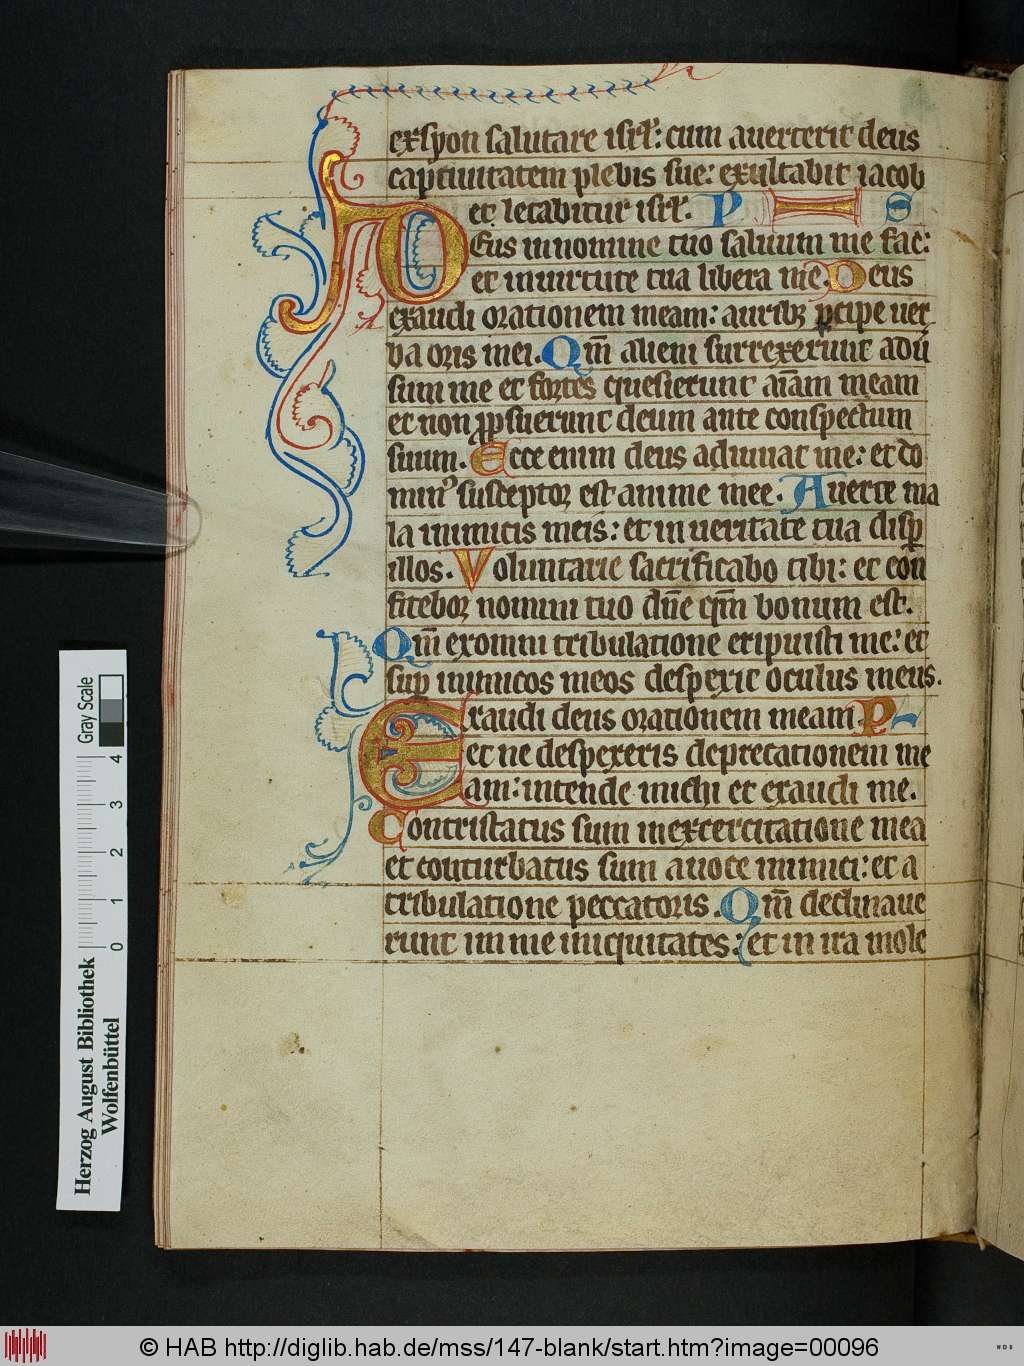 exsyon salutare isrl̄: cum auerterit deus
captiuitatem plebis sue: exultabit iacob
et letabitur isrl̄. P I S
Deus in nomine tuo saluum me fac:
et in uirtute tua libera me. Deus
exaudi orationem meam: auribꝫ ꝑcipe uer
ba oris mei. Qm̄ alieni surrexerunt adū
sum me et fortes quesierunt aīam meam
et non ꝓpsuerunt deum ante conspectum
suum. Ecce enim deus adiuuat me: et do
minꝰ susceptor est anime mee. Auerte ma
la inimicis meis: et in ueritate tua disꝑ
illos. Voluntarie sacrificabo tibi: et con
fitebor nomini tuo dn̄e qm̄ bonum est.
Qm̄ exomni tribulatione eripuisti me: et
suꝑ inimicos meos despexit oculus meus.
Exaudi deus orationem meam P
et ne despexeris deprecationem me
am: intende michi et exaudi me.
Contristatus sum in exercitatione mea
et conturbatus sum a uoce inimici: et a
tribulatione peccatoris. Qm̄ declinaue
runt in me iniquitates: et in ira mole
Herzog August Bibliothek
Wolfenbüttel
0 1 2 3 4
Gray Scale
© HAB http://diglib.hab.de/mss/147-blank/start.htm?image=00096